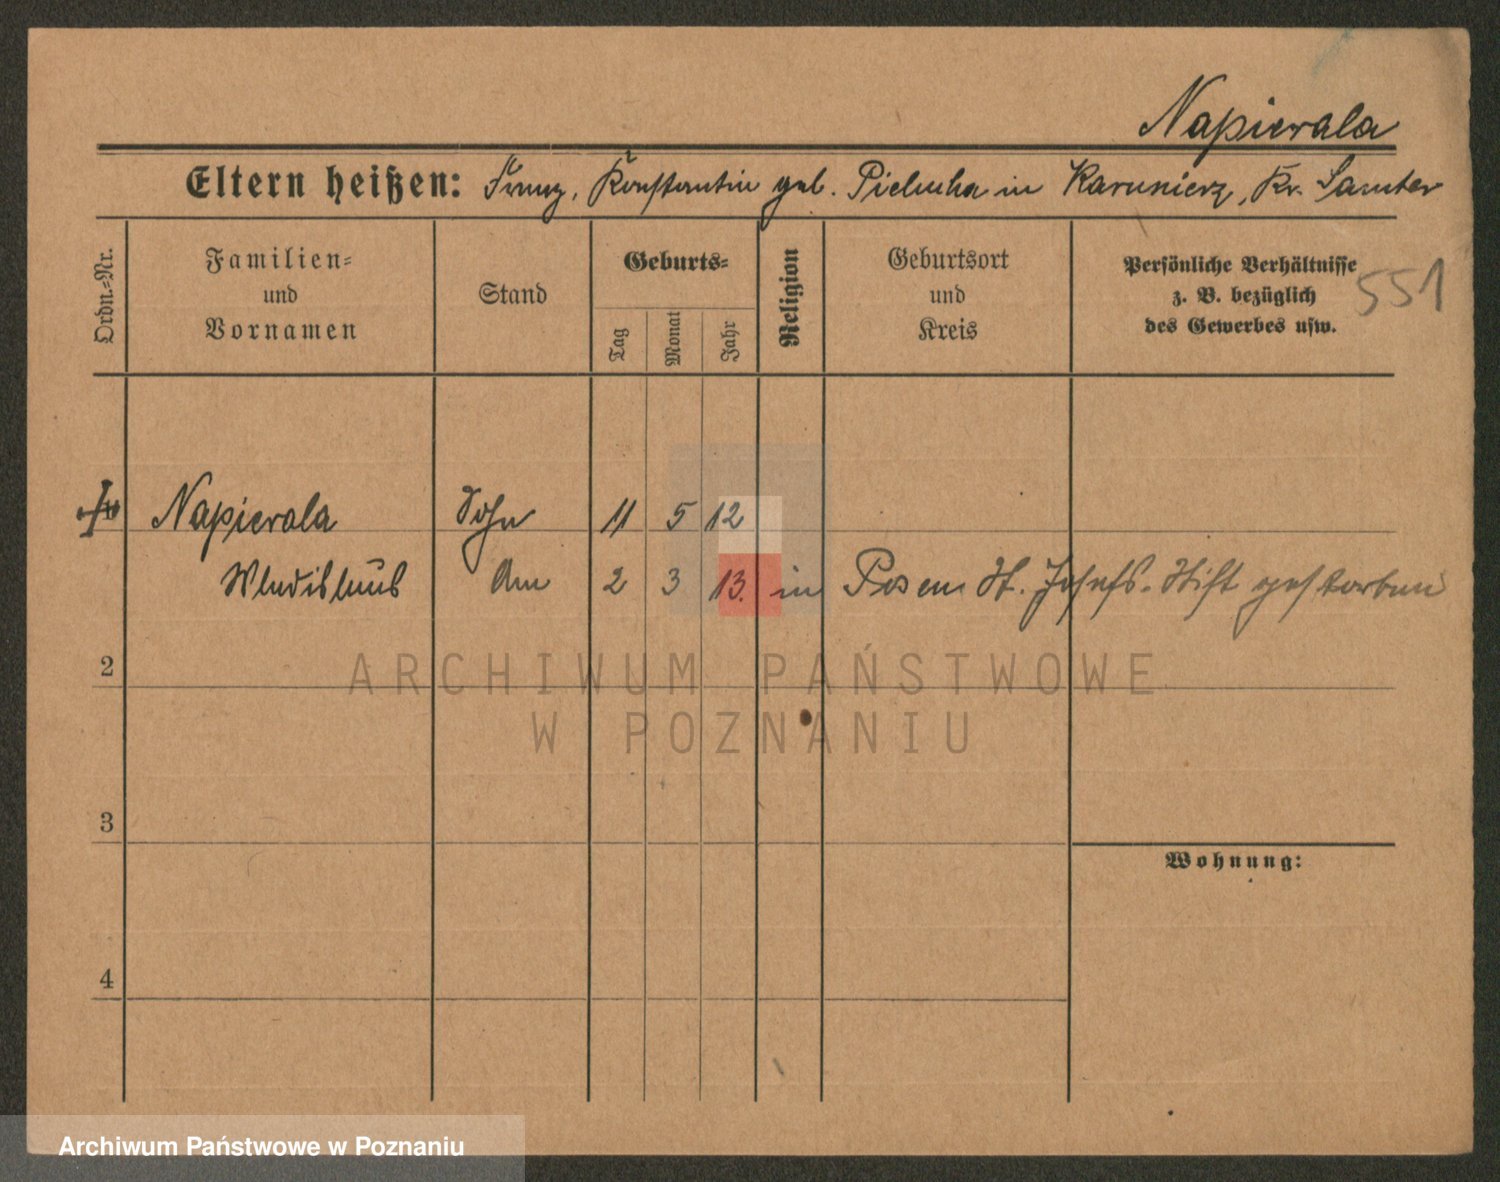 Napierala
Eltern heißen: Franz, Konstantin geb. Pielucha in Kazmierz, Kr. Samter
Ordn.-Nr.
Familien-
und
Vornamen
Stand
Geburts-
Tag
Monat
Jahr
Religion
Geburtsort
und
Kreis
Persönliche Verhältnisse
z. B. bezüglich
des Gewerbes usw.
551
Napierala Sohn 11 5 12
Wladislaus Am 2 3 13. in Posen St. Josefs-Stift gestorben
2
ARCHIWUM PAŃSTWOWE
W POZNANIU
3
Wohnung:
4
Archiwum Państwowe w Poznaniu